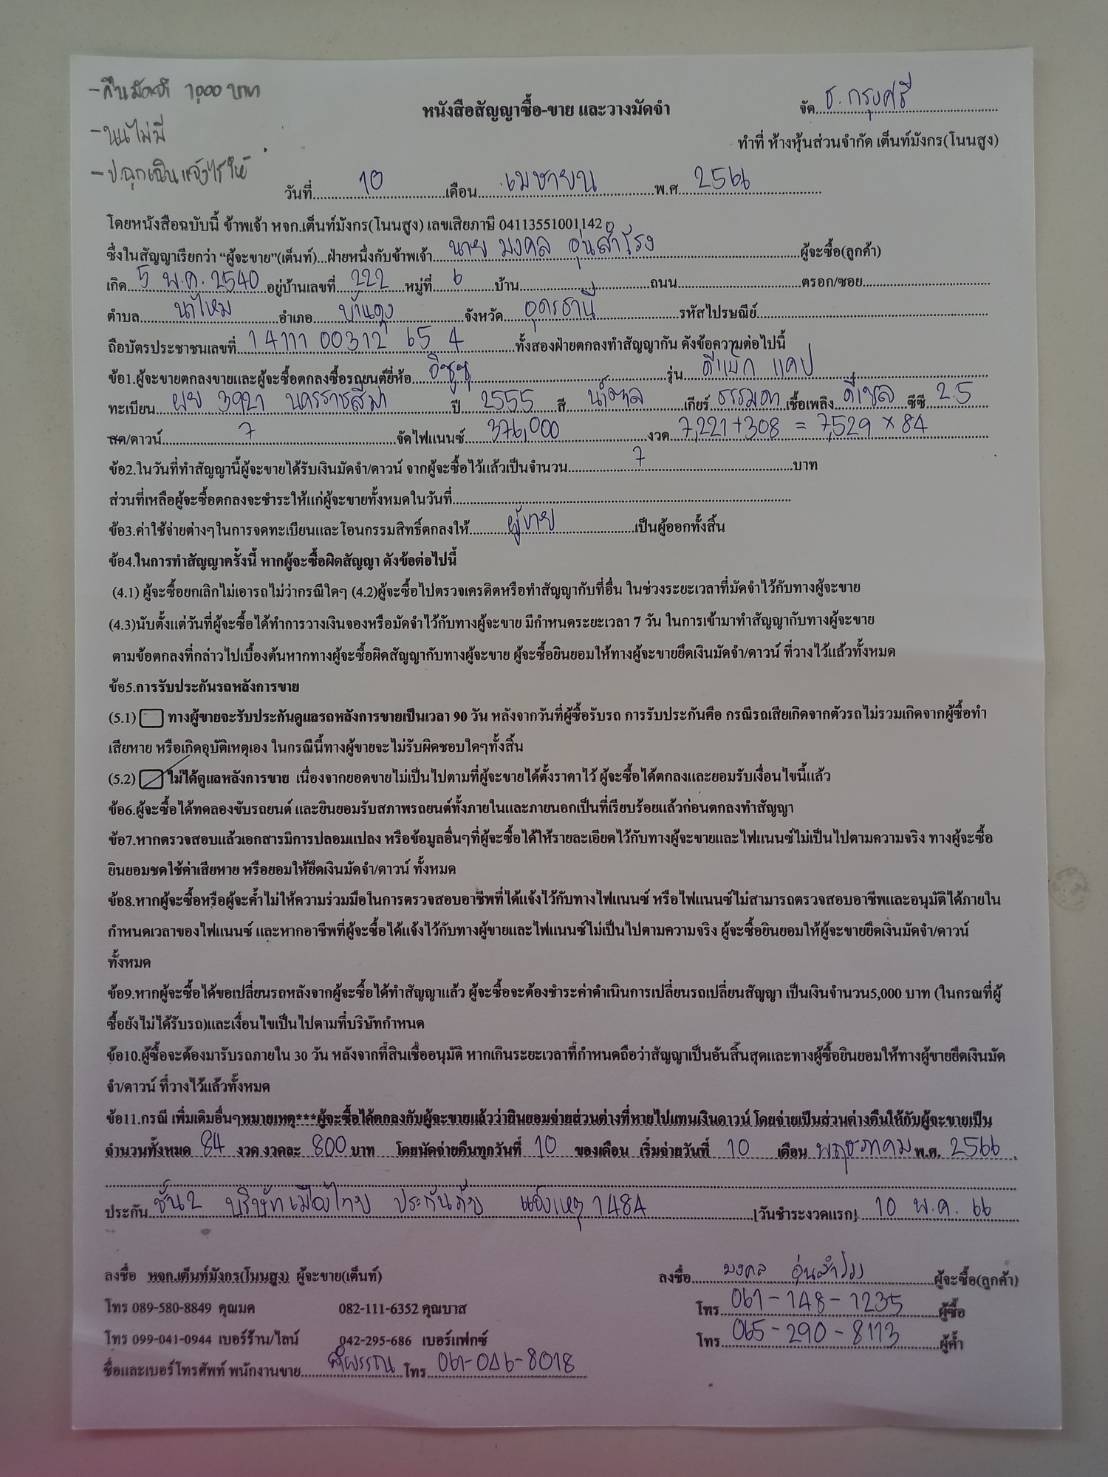 -คืนมัดจำ 1,000 บาท
-นน ไม่มี
-ปลุกเฉิน แจ้งไว้ให้
หนังสือสัญญาซื้อ-ขาย และวางมัดจำ
จัด ธ. กรุงศรี
ทำที่ ห้างหุ้นส่วนจำกัด เต็นท์มังกร(โนนสูง)
วันที่ 10 เดือน เมษายน พ.ศ 2566
โดยหนังสือฉบับนี้ ข้าพเจ้า หจก.เต็นท์มังกร(โนนสูง) เลขเสียภาษี 04113551001142
ซึ่งในสัญญาเรียกว่า “ผู้จะขาย”(เต็นท์)...ฝ่ายหนึ่งกับข้าพเจ้า นาย มงคล อุ่นสำโรง ผู้จะซื้อ(ลูกค้า)
เกิด 5 พ.ค. 2540 อยู่บ้านเลขที่ 222 หมู่ที่ 6 บ้าน ถนน ตรอก/ซอย
ตำบล นาไหม อำเภอ บ้านดุง จังหวัด อุดรธานี รหัสไปรษณีย์
ถือบัตรประชาชนเลขที่ 1 4111 00312 65 4 ทั้งสองฝ่ายตกลงทำสัญญากัน ดังข้อความต่อไปนี้
ข้อ1.ผู้จะขายตกลงขายและผู้จะซื้อตกลงซื้อรถยนต์ยี่ห้อ อีซูซุ รุ่น ดีแม็ก แคป
ทะเบียน ผย 3921 นครราชสีมา ปี 2555 สี น้ำตาล เกียร์ ธรรมดา เชื้อเพลิง ดีเซล ซีซี 2.5
สด/ดาวน์ 7 จัดไฟแนนซ์ 376,000 งวด 7,221+308 = 7,529 × 84
ข้อ2.ในวันที่ทำสัญญานี้ผู้จะขายได้รับเงินมัดจำ/ดาวน์ จากผู้จะซื้อไว้แล้วเป็นจำนวน 7 บาท
ส่วนที่เหลือผู้จะซื้อตกลงจะชำระให้แก่ผู้จะขายทั้งหมดในวันที่
ข้อ3.ค่าใช้จ่ายต่างๆในการจดทะเบียนและโอนกรรมสิทธิ์ตกลงให้ ผู้ขาย เป็นผู้ออกทั้งสิ้น
ข้อ4.ในการทำสัญญาครั้งนี้ หากผู้จะซื้อผิดสัญญา ดังข้อต่อไปนี้
(4.1) ผู้จะซื้อยกเลิกไม่เอารถไม่ว่ากรณีใดๆ (4.2)ผู้จะซื้อไปตรวจเครดิตหรือทำสัญญากับที่อื่น ในช่วงระยะเวลาที่มัดจำไว้กับทางผู้จะขาย
(4.3)นับตั้งแต่วันที่ผู้จะซื้อได้ทำการวางเงินจองหรือมัดจำไว้กับทางผู้จะขาย มีกำหนดระยะเวลา 7 วัน ในการเข้ามาทำสัญญากับทางผู้จะขาย
ตามข้อตกลงที่กล่าวไปเบื้องต้นหากทางผู้จะซื้อผิดสัญญากับทางผู้จะขาย ผู้จะซื้อยินยอมให้ทางผู้จะขายยึดเงินมัดจำ/ดาวน์ ที่วางไว้แล้วทั้งหมด
ข้อ5.การรับประกันรถหลังการขาย
(5.1) ทางผู้ขายจะรับประกันดูแลรถหลังการขายเป็นเวลา 90 วัน หลังจากวันที่ผู้ซื้อรับรถ การรับประกันคือ กรณีรถเสียเกิดจากตัวรถ ไม่รวมเกิดจากผู้ซื้อทำ
เสียหาย หรือเกิดอุบัติเหตุเอง ในกรณีนี้ทางผู้ขายจะไม่รับผิดชอบใดๆทั้งสิ้น
(5.2) ไม่ได้ดูแลหลังการขาย เนื่องจากยอดขายไม่เป็นไปตามที่ผู้จะขายได้ตั้งราคาไว้ ผู้จะซื้อได้ตกลงและยอมรับเงื่อนไขนี้แล้ว
ข้อ6.ผู้จะซื้อได้ทดลองขับรถยนต์ และยินยอมรับสภาพรถยนต์ทั้งภายในและภายนอกเป็นที่เรียบร้อยแล้วก่อนตกลงทำสัญญา
ข้อ7.หากตรวจสอบแล้วเอกสารมีการปลอมแปลง หรือข้อมูลอื่นๆที่ผู้จะซื้อได้ให้รายละเอียดไว้กับทางผู้จะขายและไฟแนนซ์ไม่เป็นไปตามความจริง ทางผู้จะซื้อ
ยินยอมชดใช้ค่าเสียหาย หรือยอมให้ยึดเงินมัดจำ/ดาวน์ ทั้งหมด
ข้อ8.หากผู้จะซื้อหรือผู้จะค้ำไม่ให้ความร่วมมือในการตรวจสอบอาชีพที่ได้แจ้งไว้กับทางไฟแนนซ์ หรือไฟแนนซ์ไม่สามารถตรวจสอบอาชีพและอนุมัติได้ภายใน
กำหนดเวลาของไฟแนนซ์ และหากอาชีพที่ผู้จะซื้อได้แจ้งไว้กับทางผู้ขายและไฟแนนซ์ไม่เป็นไปตามความจริง ผู้จะซื้อยินยอมให้ผู้จะขายยึดเงินมัดจำ/ดาวน์
ทั้งหมด
ข้อ9.หากผู้จะซื้อได้ขอเปลี่ยนรถหลังจากผู้จะซื้อได้ทำสัญญาแล้ว ผู้จะซื้อจะต้องชำระค่าดำเนินการเปลี่ยนรถเปลี่ยนสัญญา เป็นเงินจำนวน5,000 บาท (ในกรณที่ผู้
ซื้อยังไม่ได้รับรถ)และเงื่อนไขเป็นไปตามที่บริษัทกำหนด
ข้อ10.ผู้ซื้อจะต้องมารับรถภายใน 30 วัน หลังจากที่สินเชื่ออนุมัติ หากเกินระยะเวลาที่กำหนดถือว่าสัญญาเป็นอันสิ้นสุดและทางผู้ซื้อยินยอมให้ทางผู้ขายยึดเงินมัด
จำ/ดาวน์ ที่วางไว้แล้วทั้งหมด
ข้อ11.กรณี เพิ่มเติมอื่นๆหมายเหตุ***ผู้จะซื้อได้ตกลงกับผู้จะขายแล้วว่ายินยอมจ่ายส่วนต่างที่หายไปแทนเงินดาวน์ โดยจ่ายเป็นส่วนต่างคืนให้กับผู้จะขายเป็น
จำนวนทั้งหมด 84 งวด งวดละ 800 บาท โดยนัดจ่ายคืนทุกวันที่ 10 ของเดือน เริ่มจ่ายวันที่ 10 เดือน พฤษภาคม พ.ศ. 2566
ประกัน ชั้น2 บริษัท เมืองไทย ประกันภัย แจ้งเหตุ 1484 [วันชำระงวดแรก] 10 พ.ค. 66
ลงชื่อ หจก.เต็นท์มังกร(โนนสูง) ผู้จะขาย(เต็นท์) ลงชื่อ มงคล อุ่นสำโรง ผู้จะซื้อ(ลูกค้า)
โทร 089-580-8849 คุณมด 082-111-6352 คุณบาส โทร 061-148-1235 ผู้ซื้อ
โทร 099-041-0944 เบอร์ร้าน/ไลน์ 042-295-686 เบอร์แฟกซ์ โทร 065-290-8113 ผู้ค้ำ
ชื่อและเบอร์โทรศัพท์ พนักงานขาย โทร 061-046-8018